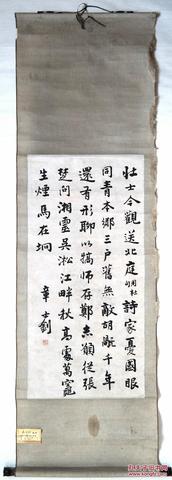 壯士今觀送北庭用杜句詩家憂國眼
同青本鄉三戶舊無敵胡千年
還有形聊以犒師存鄭志願從張
楚問湘靈吳淞江畔秋高處萬竈
生煙馬在坰
章士釗